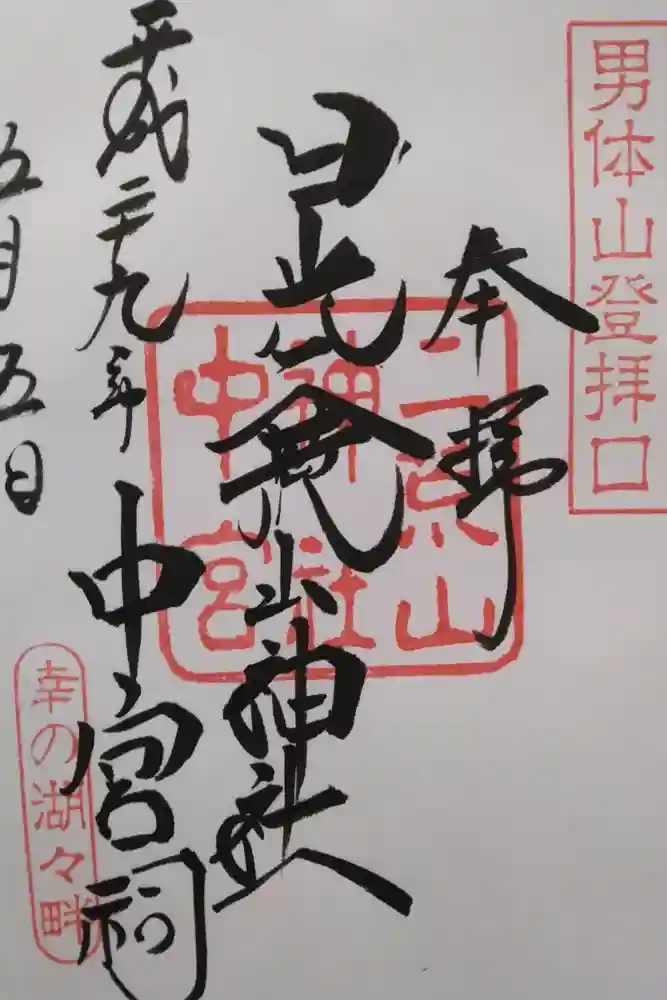 男体山登拝口
奉拝
日光二荒山神社
中宮祠
二荒山
神社
中宮
平成二十九年
五月五日
幸の湖々畔